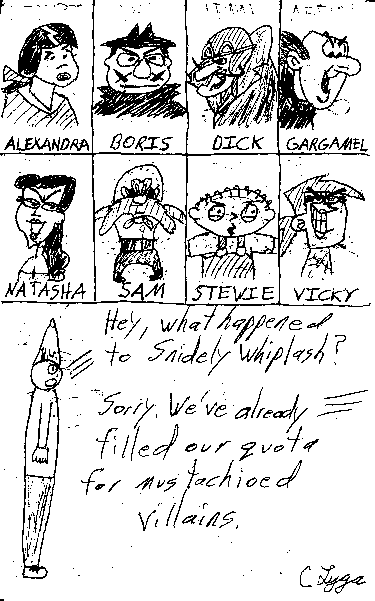 ALEXANDRA BORIS DICK GARGAMEL
NATASHA SAM STEVIE VICKY
Hey, what happened
to Snidely Whiplash?
Sorry. We've already
filled our quota
for mustachioed
villains.
C Lyga